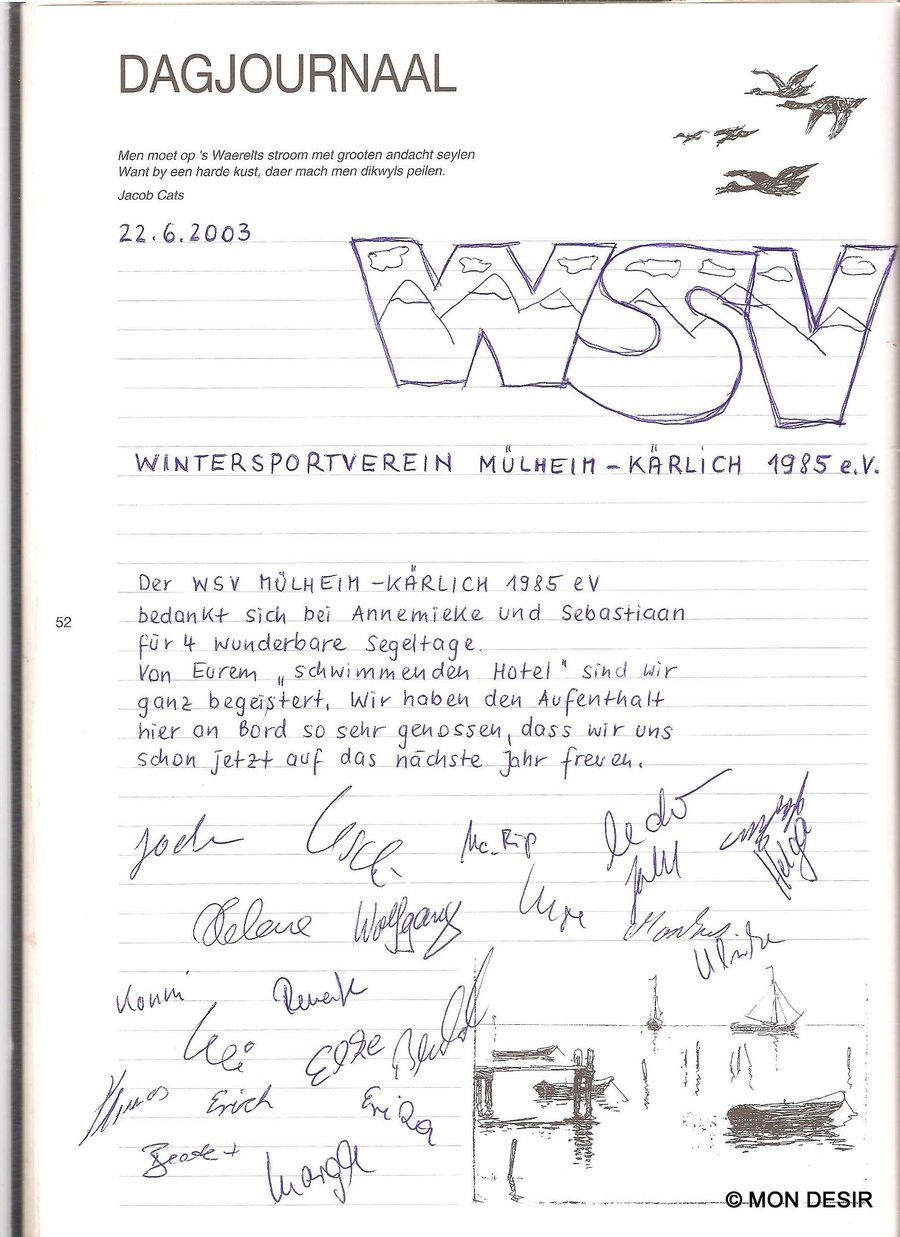 DAGJOURNAAL
Men moet op 's Waerelts stroom met grooten andacht seylen
Want by een harde kust, daer mach men dikwyls peilen.
Jacob Cats
22.6.2003
WSV
WINTERSPORTVEREIN MÜLHEIM - KÄRLICH 1985 e.V.
Der WSV MÜLHEIM - KÄRLICH 1985 eV
bedankt sich bei Annemieke und Sebastiaan
für 4 wunderbare Segeltage.
52
Von Eurem „schwimmenden Hotel" sind wir
ganz begeistert. Wir haben den Aufenthalt
hier an Bord so sehr genossen, dass wir uns
schon jetzt auf das nächste Jahr freuen.
Mc. Rip
Helga
Helene Wolfgang Markus
Ulrike
Konni
Elke
Erich Erika
Beate
© MON DESIR